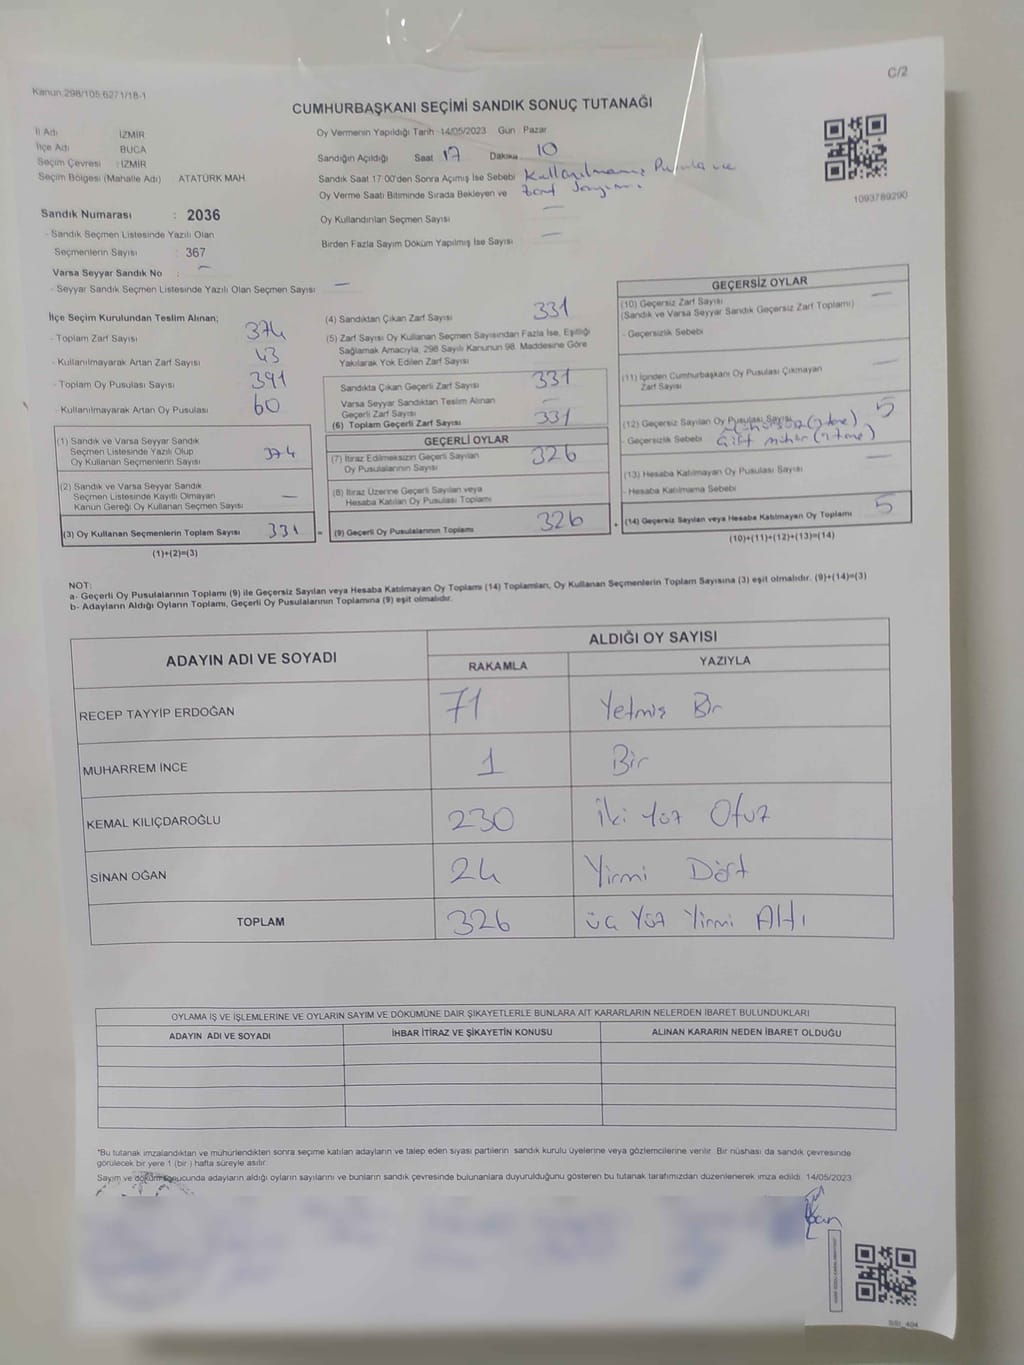 C/2
Kanun:298/105,6271/18-1
CUMHURBAŞKANI SEÇİMİ SANDIK SONUÇ TUTANAĞI
İl Adı İZMİR
İlçe Adı BUCA
Seçim Çevresi : İZMİR
Seçim Bölgesi (Mahalle Adı) ATATÜRK MAH.
Oy Vermenin Yapıldığı Tarih 14/05/2023 Gün Pazar
Sandığın Açıldığı Saat 17 Dakika 10
Sandık Saat 17:00'den Sonra Açımış İse Sebebi Kullanılmamış Pusula ve
Oy Verme Saati Bitiminde Sırada Bekleyen ve zarf sayımı
Oy Kullandırılan Seçmen Sayısı —
Birden Fazla Sayım Döküm Yapılmış İse Sayısı —
1093789290
Sandık Numarası : 2036
- Sandık Seçmen Listesinde Yazılı Olan
Seçmenlerin Sayısı : 367
Varsa Seyyar Sandık No : —
- Seyyar Sandık Seçmen Listesinde Yazılı Olan Seçmen Sayısı : —
İlçe Seçim Kurulundan Teslim Alınan;
- Toplam Zarf Sayısı 374
- Kullanılmayarak Artan Zarf Sayısı 43
- Toplam Oy Pusulası Sayısı 391
- Kullanılmayarak Artan Oy Pusulası 60
(1) Sandık ve Varsa Seyyar Sandık
Seçmen Listesinde Yazılı Olup
Oy Kullanan Seçmenlerin Sayısı 374
(2) Sandık ve Varsa Seyyar Sandık
Seçmen Listesinde Kayıtlı Olmayan
Kanun Gereği Oy Kullanan Seçmen Sayısı —
(3) Oy Kullanan Seçmenlerin Toplam Sayısı 331
(1)+(2)=(3)
(4) Sandıktan Çıkan Zarf Sayısı 331
(5) Zarf Sayısı Oy Kullanan Seçmen Sayısından Fazla İse, Eşitliği
Sağlamak Amacıyla, 298 Sayılı Kanunun 98. Maddesine Göre
Yakılarak Yok Edilen Zarf Sayısı
Sandıkta Çıkan Geçerli Zarf Sayısı 331
Varsa Seyyar Sandıktan Teslim Alınan
Geçerli Zarf Sayısı —
(6) Toplam Geçerli Zarf Sayısı 331
GEÇERLİ OYLAR
(7) İtiraz Edilmeksizin Geçerli Sayılan
Oy Pusulalarının Sayısı 326
(8) İtiraz Üzerine Geçerli Sayılan veya
Hesaba Katılan Oy Pusulası Toplamı
= (9) Geçerli Oy Pusulalarının Toplamı 326
GEÇERSİZ OYLAR
(10) Geçersiz Zarf Sayısı
(Sandık ve Varsa Seyyar Sandık Geçersiz Zarf Toplamı) —
- Geçersizlik Sebebi
(11) İçinden Cumhurbaşkanı Oy Pusulası Çıkmayan
Zarf Sayısı —
(12) Geçersiz Sayılan Oy Pusulası Sayısı 5
- Geçersizlik Sebebi Çift mühür
(13) Hesaba Katılmayan Oy Pusulası Sayısı —
- Hesaba Katılmama Sebebi
+ (14) Geçersiz Sayılan veya Hesaba Katılmayan Oy Toplamı 5
(10)+(11)+(12)+(13)=(14)
NOT:
a- Geçerli Oy Pusulalarının Toplamı (9) ile Geçersiz Sayılan veya Hesaba Katılmayan Oy Toplamı (14) Toplamları, Oy Kullanan Seçmenlerin Toplam Sayısına (3) eşit olmalıdır. (9)+(14)=(3)
b- Adayların Aldığı Oyların Toplamı, Geçerli Oy Pusulalarının Toplamına (9) eşit olmalıdır.
ADAYIN ADI VE SOYADI
ALDIĞI OY SAYISI
RAKAMLA YAZIYLA
RECEP TAYYİP ERDOĞAN 71 Yetmiş Bir
MUHARREM İNCE 1 Bir
KEMAL KILIÇDAROĞLU 230 İki Yüz Otuz
SİNAN OĞAN 24 Yirmi Dört
TOPLAM 326 Üç Yüz Yirmi Altı
OYLAMA İŞ VE İŞLEMLERİNE VE OYLARIN SAYIM VE DÖKÜMÜNE DAİR ŞİKAYETLERLE BUNLARA AİT KARARLARIN NELERDEN İBARET BULUNDUKLARI
ADAYIN ADI VE SOYADI İHBAR İTİRAZ VE ŞİKAYETİN KONUSU ALINAN KARARIN NEDEN İBARET OLDUĞU
*Bu tutanak imzalandıktan ve mühürlendikten sonra seçime katılan adayların ve talep eden siyasi partilerin sandık kurulu üyelerine veya gözlemcilerine verilir. Bir nüshası da sandık çevresinde
görülecek bir yere 1 (bir ) hafta süreyle asılır.
Sayım ve döküm sonucunda adayların aldığı oyların sayılarını ve bunların sandık çevresinde bulunanlara duyurulduğunu gösteren bu tutanak tarafımızdan düzenlenerek imza edildi. 14/05/2023